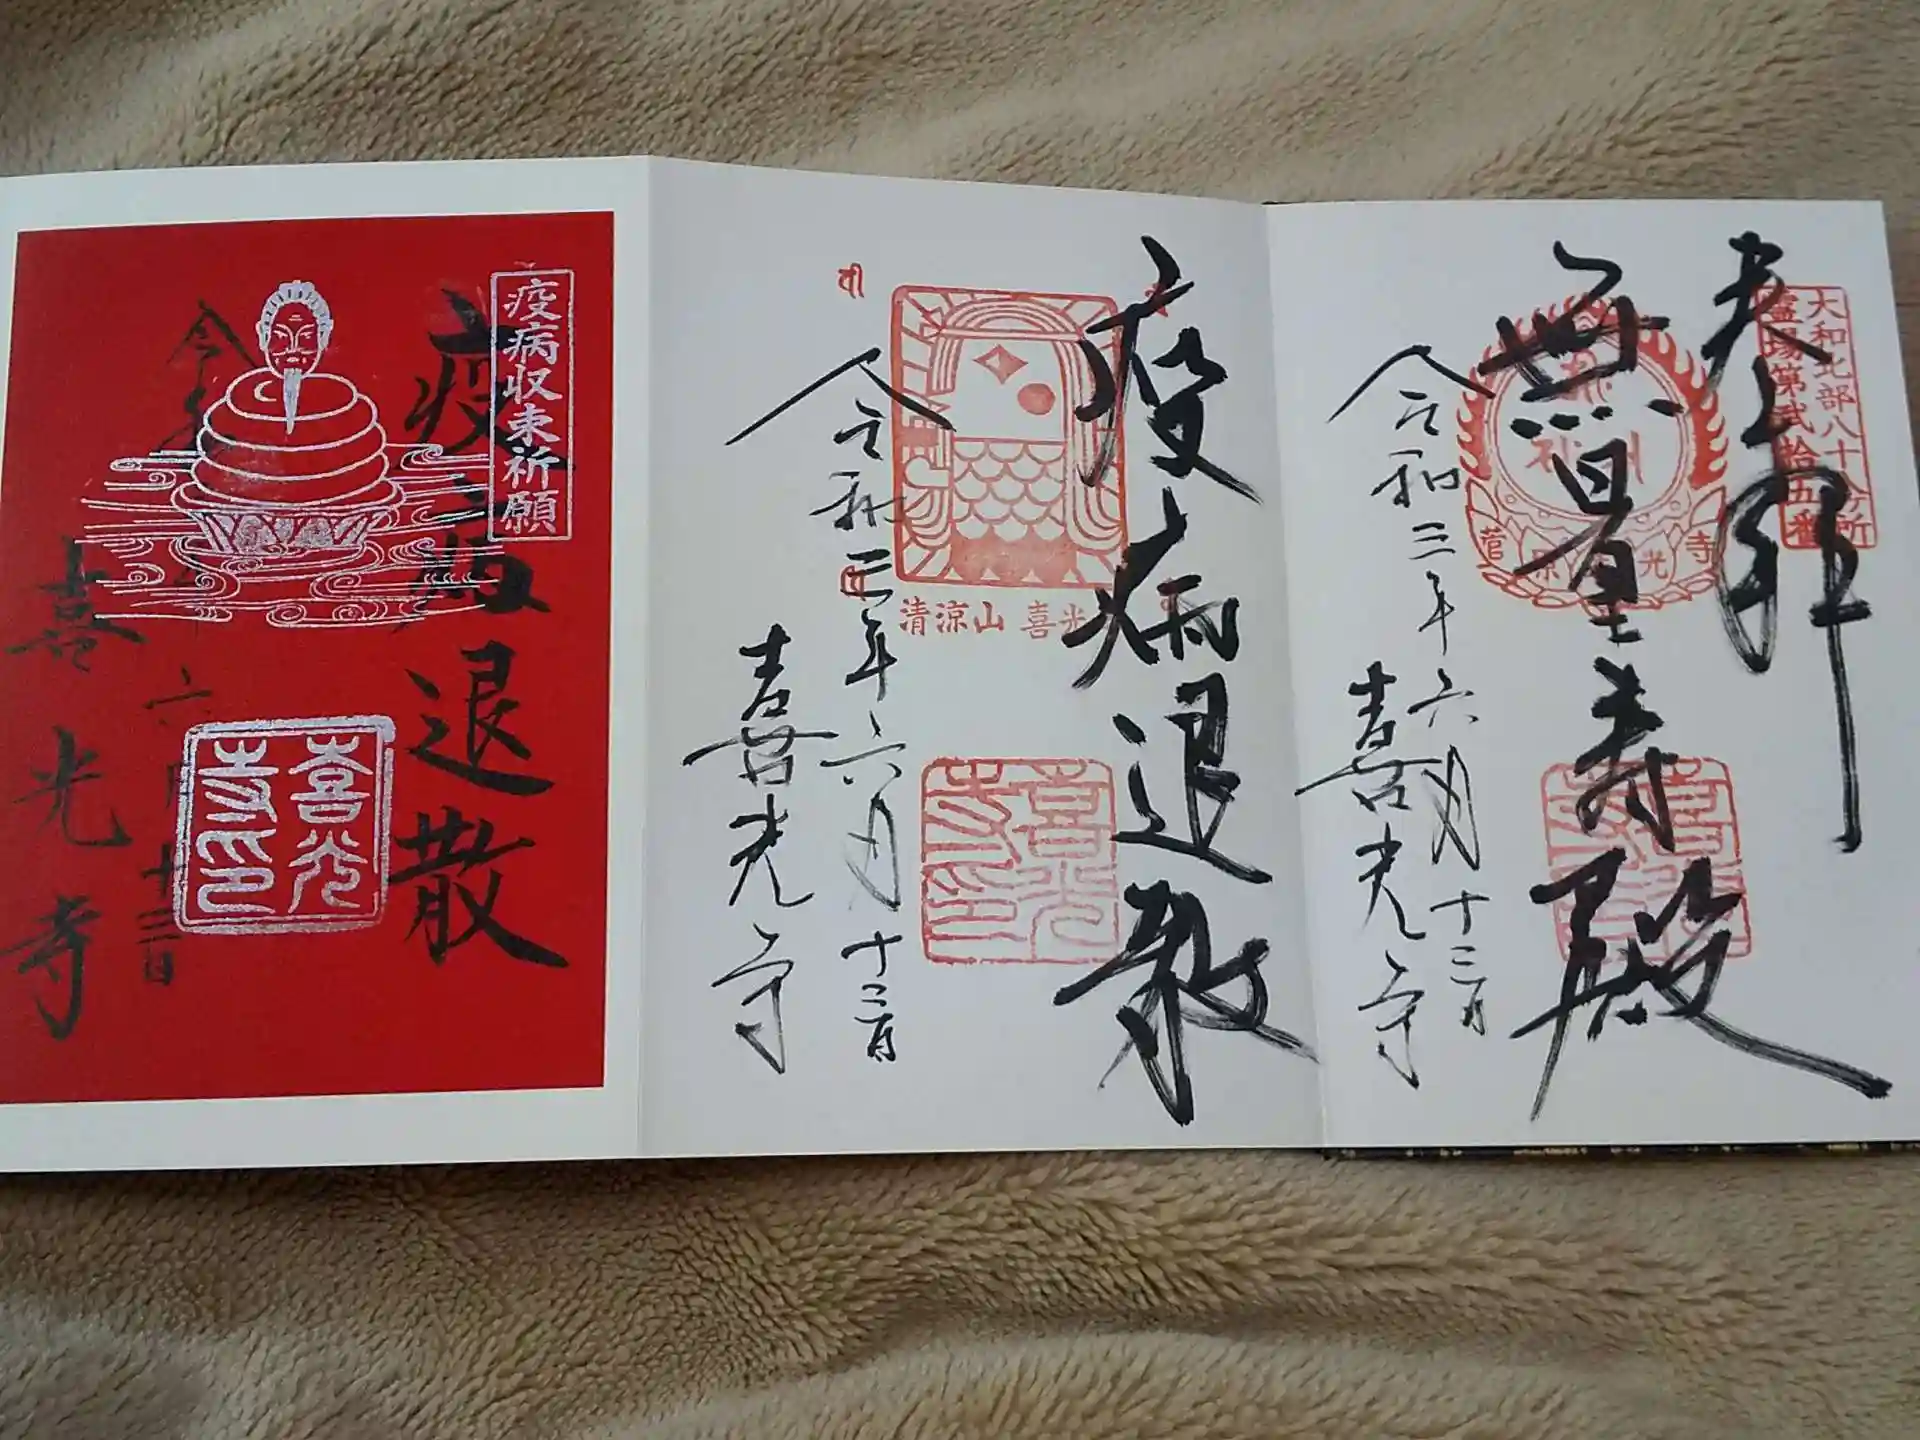 大和北部八十八ヶ所
霊場第弐拾五番
奉拝
無量寿殿
菅原
光寺
令和三年六月十三日
喜光寺
喜光寺印
疫病退散
清涼山 喜光
令和三年六月十三日
喜光寺
喜光寺印
疫病収束祈願
疫病退散
六月十三日
喜光寺
喜光寺印